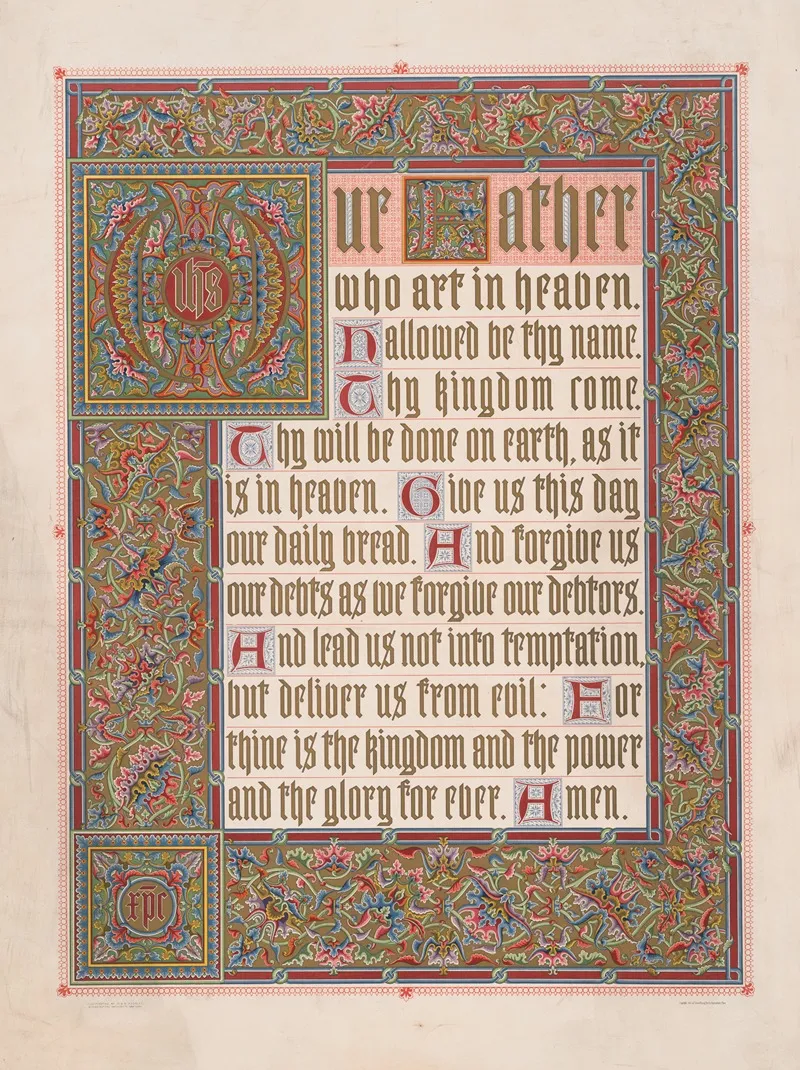 Our Father
ihs
who art in heaven.
Hallowed be thy name.
Thy kingdom come.
Thy will be done on earth, as it
is in heaven. Give us this day
our daily bread. And forgive us
our debts as we forgive our debtors.
And lead us not into temptation,
but deliver us from evil: For
thine is the kingdom and the power
and the glory for ever. Amen.
xpc